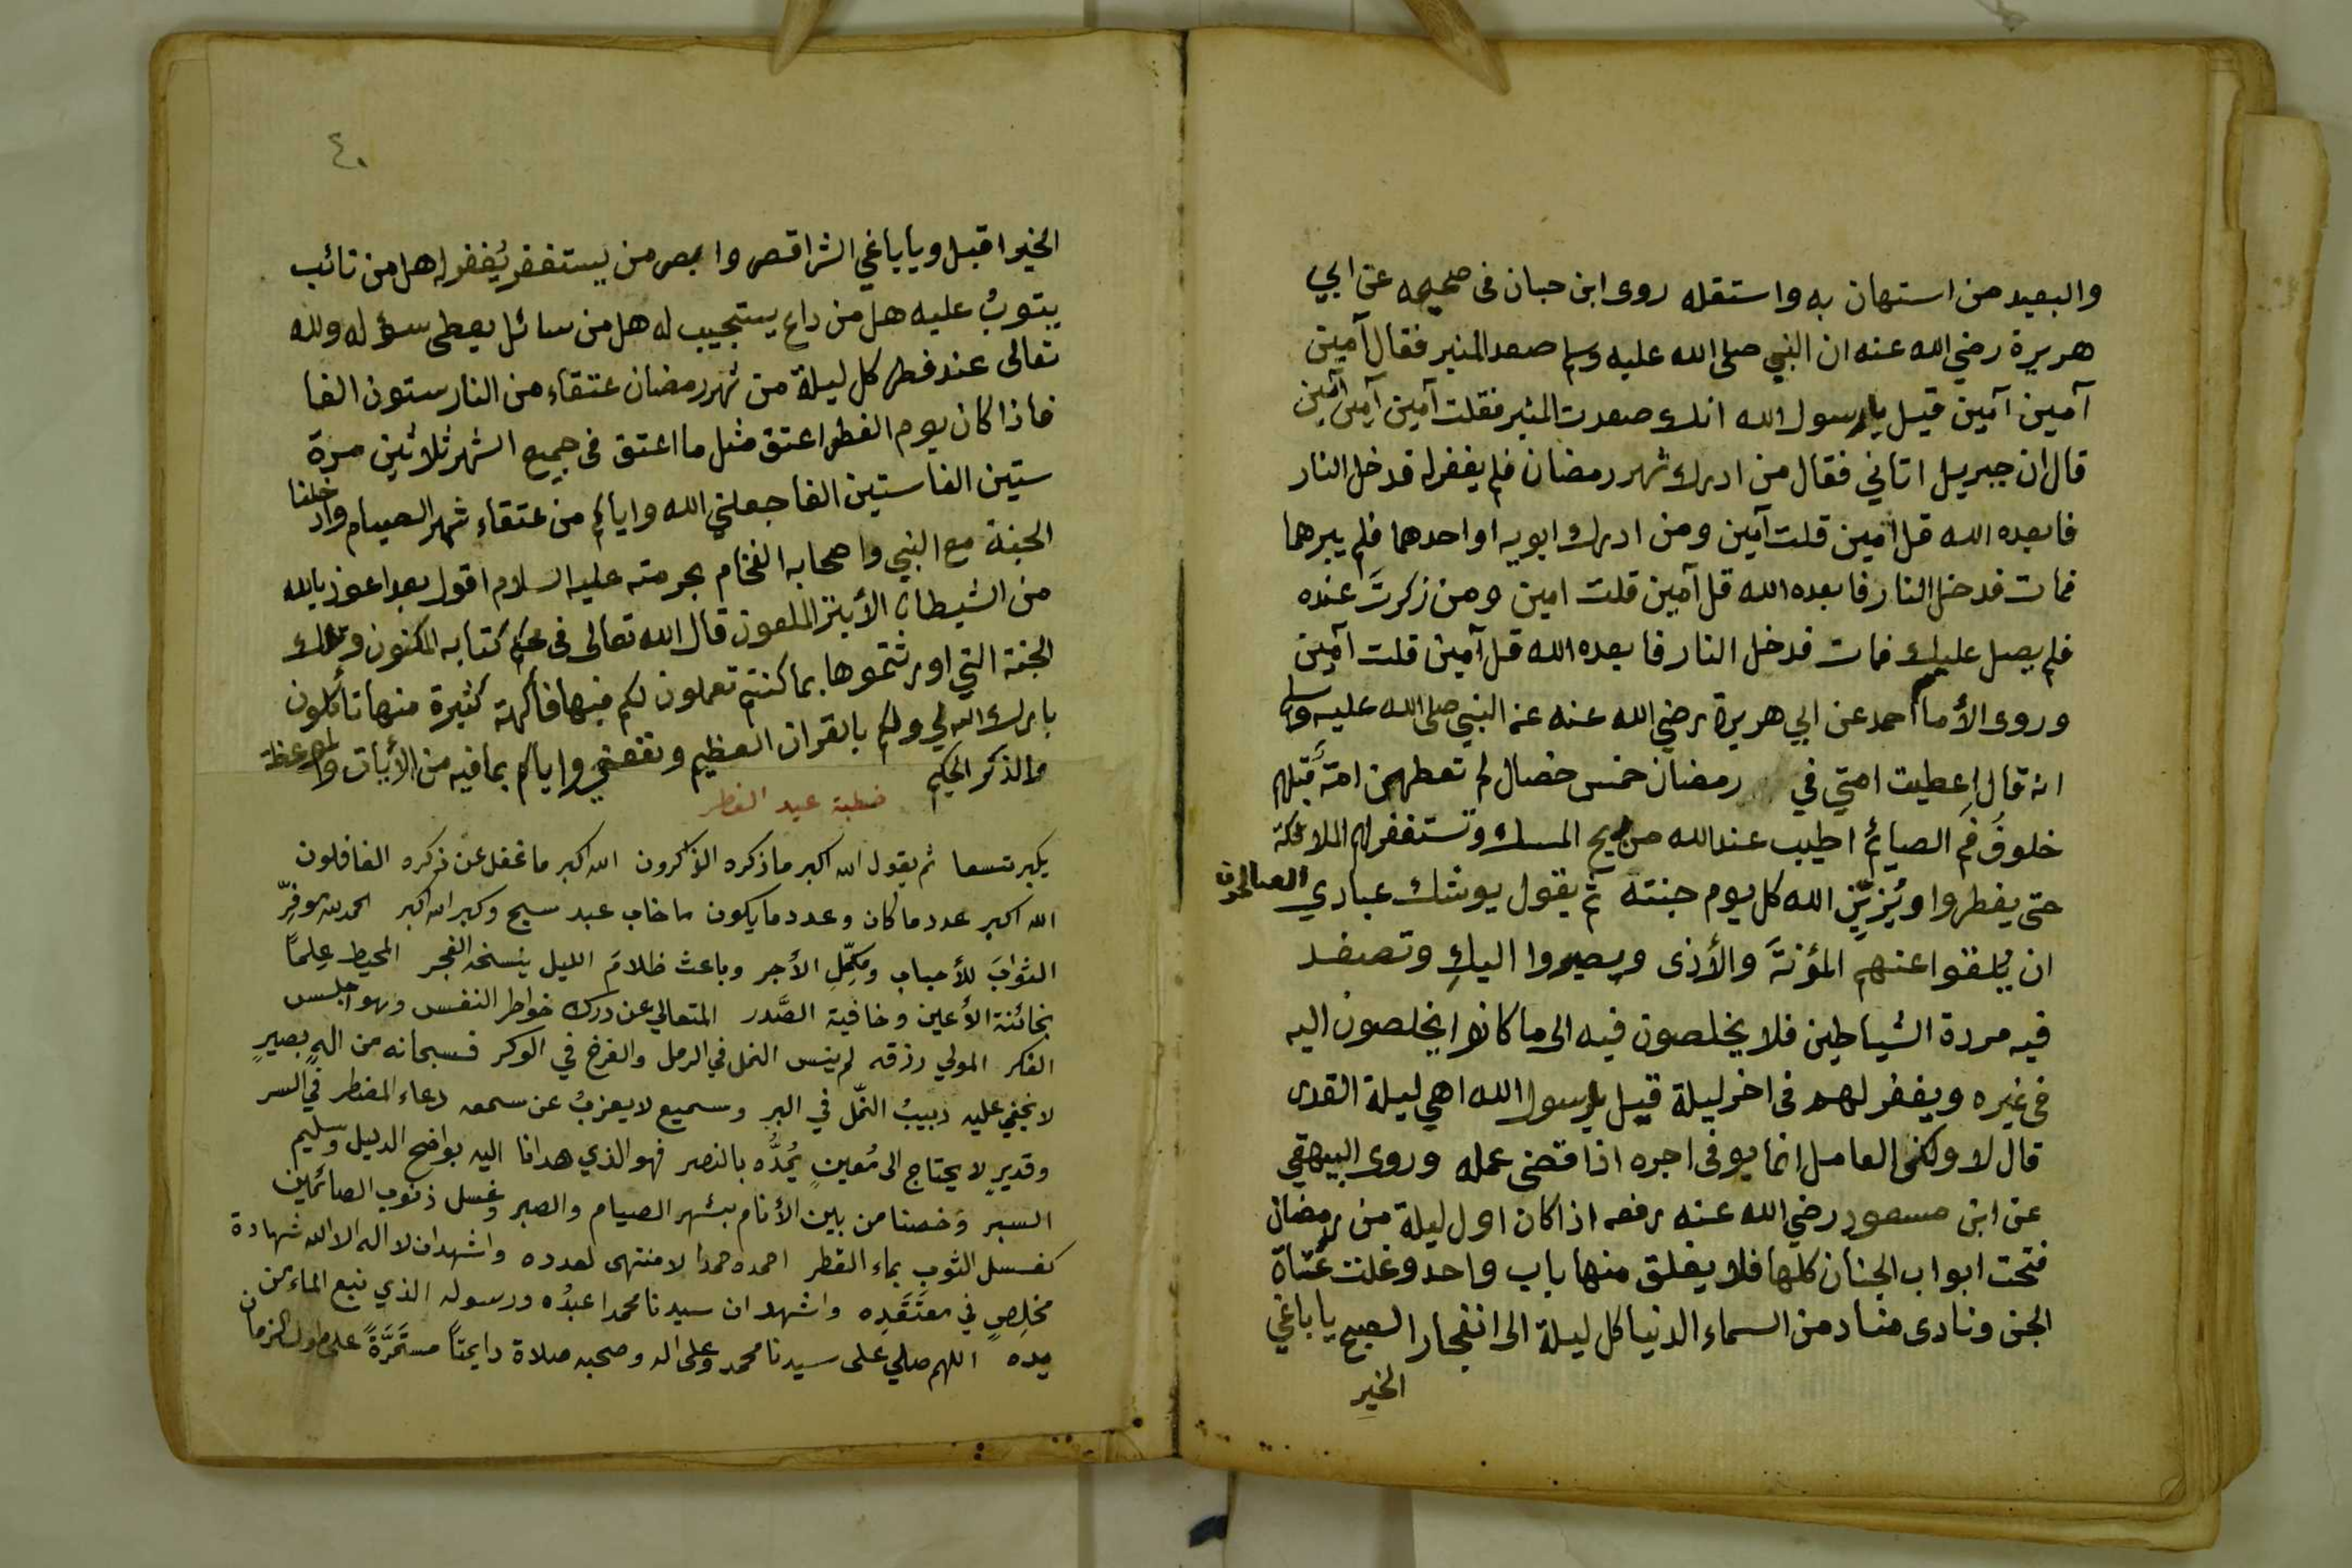 والبعيد من استهان به واستقله روى ابن حبان فى صحيحه عن ابي
هريرة رضي الله عنه ان النبي صلى الله عليه وسلم صعد المنبر فقال آمين
آمين آمين قيل يا رسول الله انك صعدت المنبر فقلت آمين آمين آمين
قال ان جبريل اتاني فقال من ادرك شهر رمضان فلم يغفر له فدخل النار
فابعده الله قل آمين قلت آمين ومن ادرك ابويه او احدهما فلم يبرهما
فمات فدخل النار فابعده الله قل آمين قلت امين ومن ذكرتَ عنده
فلم يصل عليك فمات فدخل النار فابعده الله قل آمين قلت آمين
وروى الأمام احمد عن ابي هريرة رضي الله عنه عن النبي صلى الله عليه وسلم
انه قال اعطيت امتي في رمضان خمس خصال لم تعطهن امة قبلهم
خلوفُ فم الصايم اطيب عند الله من ريح المسك وتستغفر لهم الملائكة
حتى يفطروا ويُزيّن الله كل يوم جنته ثم يقول يوشك عبادي الصالحون
ان يلقوا عنهم المؤنةَ والأذى ويصيروا اليكِ وتصفد
فيه مردة الشياطين فلا يخلصون فيه الى ما كانوا يخلصون اليه
فى غيره ويغفر لهم فى اخر ليلة قيل يا رسول الله اهي ليلة القدر
قال لا ولكن العامل انما يوفى اجره اذا قضى عمله وروى البيهقي
عن ابن مسعود رضي الله عنه رفعه اذا كان اول ليلة من رمضان
فتحت ابواب الجنان كلها فلا يغلق منها باب واحد وغلت عُتاة
الجن ونادى مناد من السماء الدنيا كل ليلة الى انفجار الصبح يا باغي
الخير
٤٠
الخير اقبل ويا باغي الشر اقصر وابصر من يستغفر يُغفر له هل من تائب
يتوبُ عليه هل من داع يستجيب له هل من سائل يعطى سؤله ولله
تعالى عند فطر كل ليلة من شهر رمضان عتقاء من النار ستون الفا
فاذا كان يوم الفطر اعتق مثل ما اعتق فى جميع الشهر ثلاثين مرة
ستين الفا ستين الفا جعلني الله واياكم من عتقاء شهر الصيام وادخلنا
الجنة مع النبي واصحابه الفخام بحرمته عليه السلام اقول بعد اعوذ بالله
من الشيطان الأبتر الملعون قال الله تعالى فى محكم كتابه المكنون وتلك
الجنة التي اورثتموها بما كنتم تعملون لكم فيها فاكهة كثيرة منها تأكلون
بارك الله لي ولكم بالقران العظيم ونفعني واياكم بما فيه من الأيات والموعظة
والذكر الحكيم
خطبة عيد الفطر
يكبر تسعا ثم يقول الله اكبر ما ذكره الذاكرون الله اكبر ما غفل عن ذكره الغافلون
الله اكبر عدد ما كان وعدد ما يكون ما خاب عبد سبح وكبر الله اكبر الحمد لله موفّرِ
الثوابَ للأحباب ومكّمِلِ الأجر وباعث ظلامَ الليل ينسخه الفجر المحيط علِماً
بخائنة الأعين وخافية الصَّدر المتعالي عن درك خواطر النفس وهواجس
الفكر المولي رزقه لم ينس النمل في الرمل والفرخ في الوكر فسبحانه من الهٍ بصيرٍ
لا يخفي عليه دبيبُ النمّل في البر وسميع لا يعزبُ عن سمعه دعاء المضطر في السر
وقديرٍ لا يحتاج الى مُعينٍ يُمدُّه بالنصر فهو الذي هدانا اليه بواضح الدليل وسليم
السبر وخصنا من بين الأنام بشهر الصيام والصبر وغسل ذنوب الصائمين
كغسل الثوب بماء القطر احمده حمدا لا منتهى لعدده واشهد ان لا اله الا الله شهادة
مخلِصٍ في معتَقَدِه واشهد ان سيدنا محمدا عبدُه ورسوله الذي نبع الماء من
يده اللهم صلي على سيدنا محمد وعلى اله وصحبه صلاة دايمتاً مستَمَّرَةً على طول الزمان